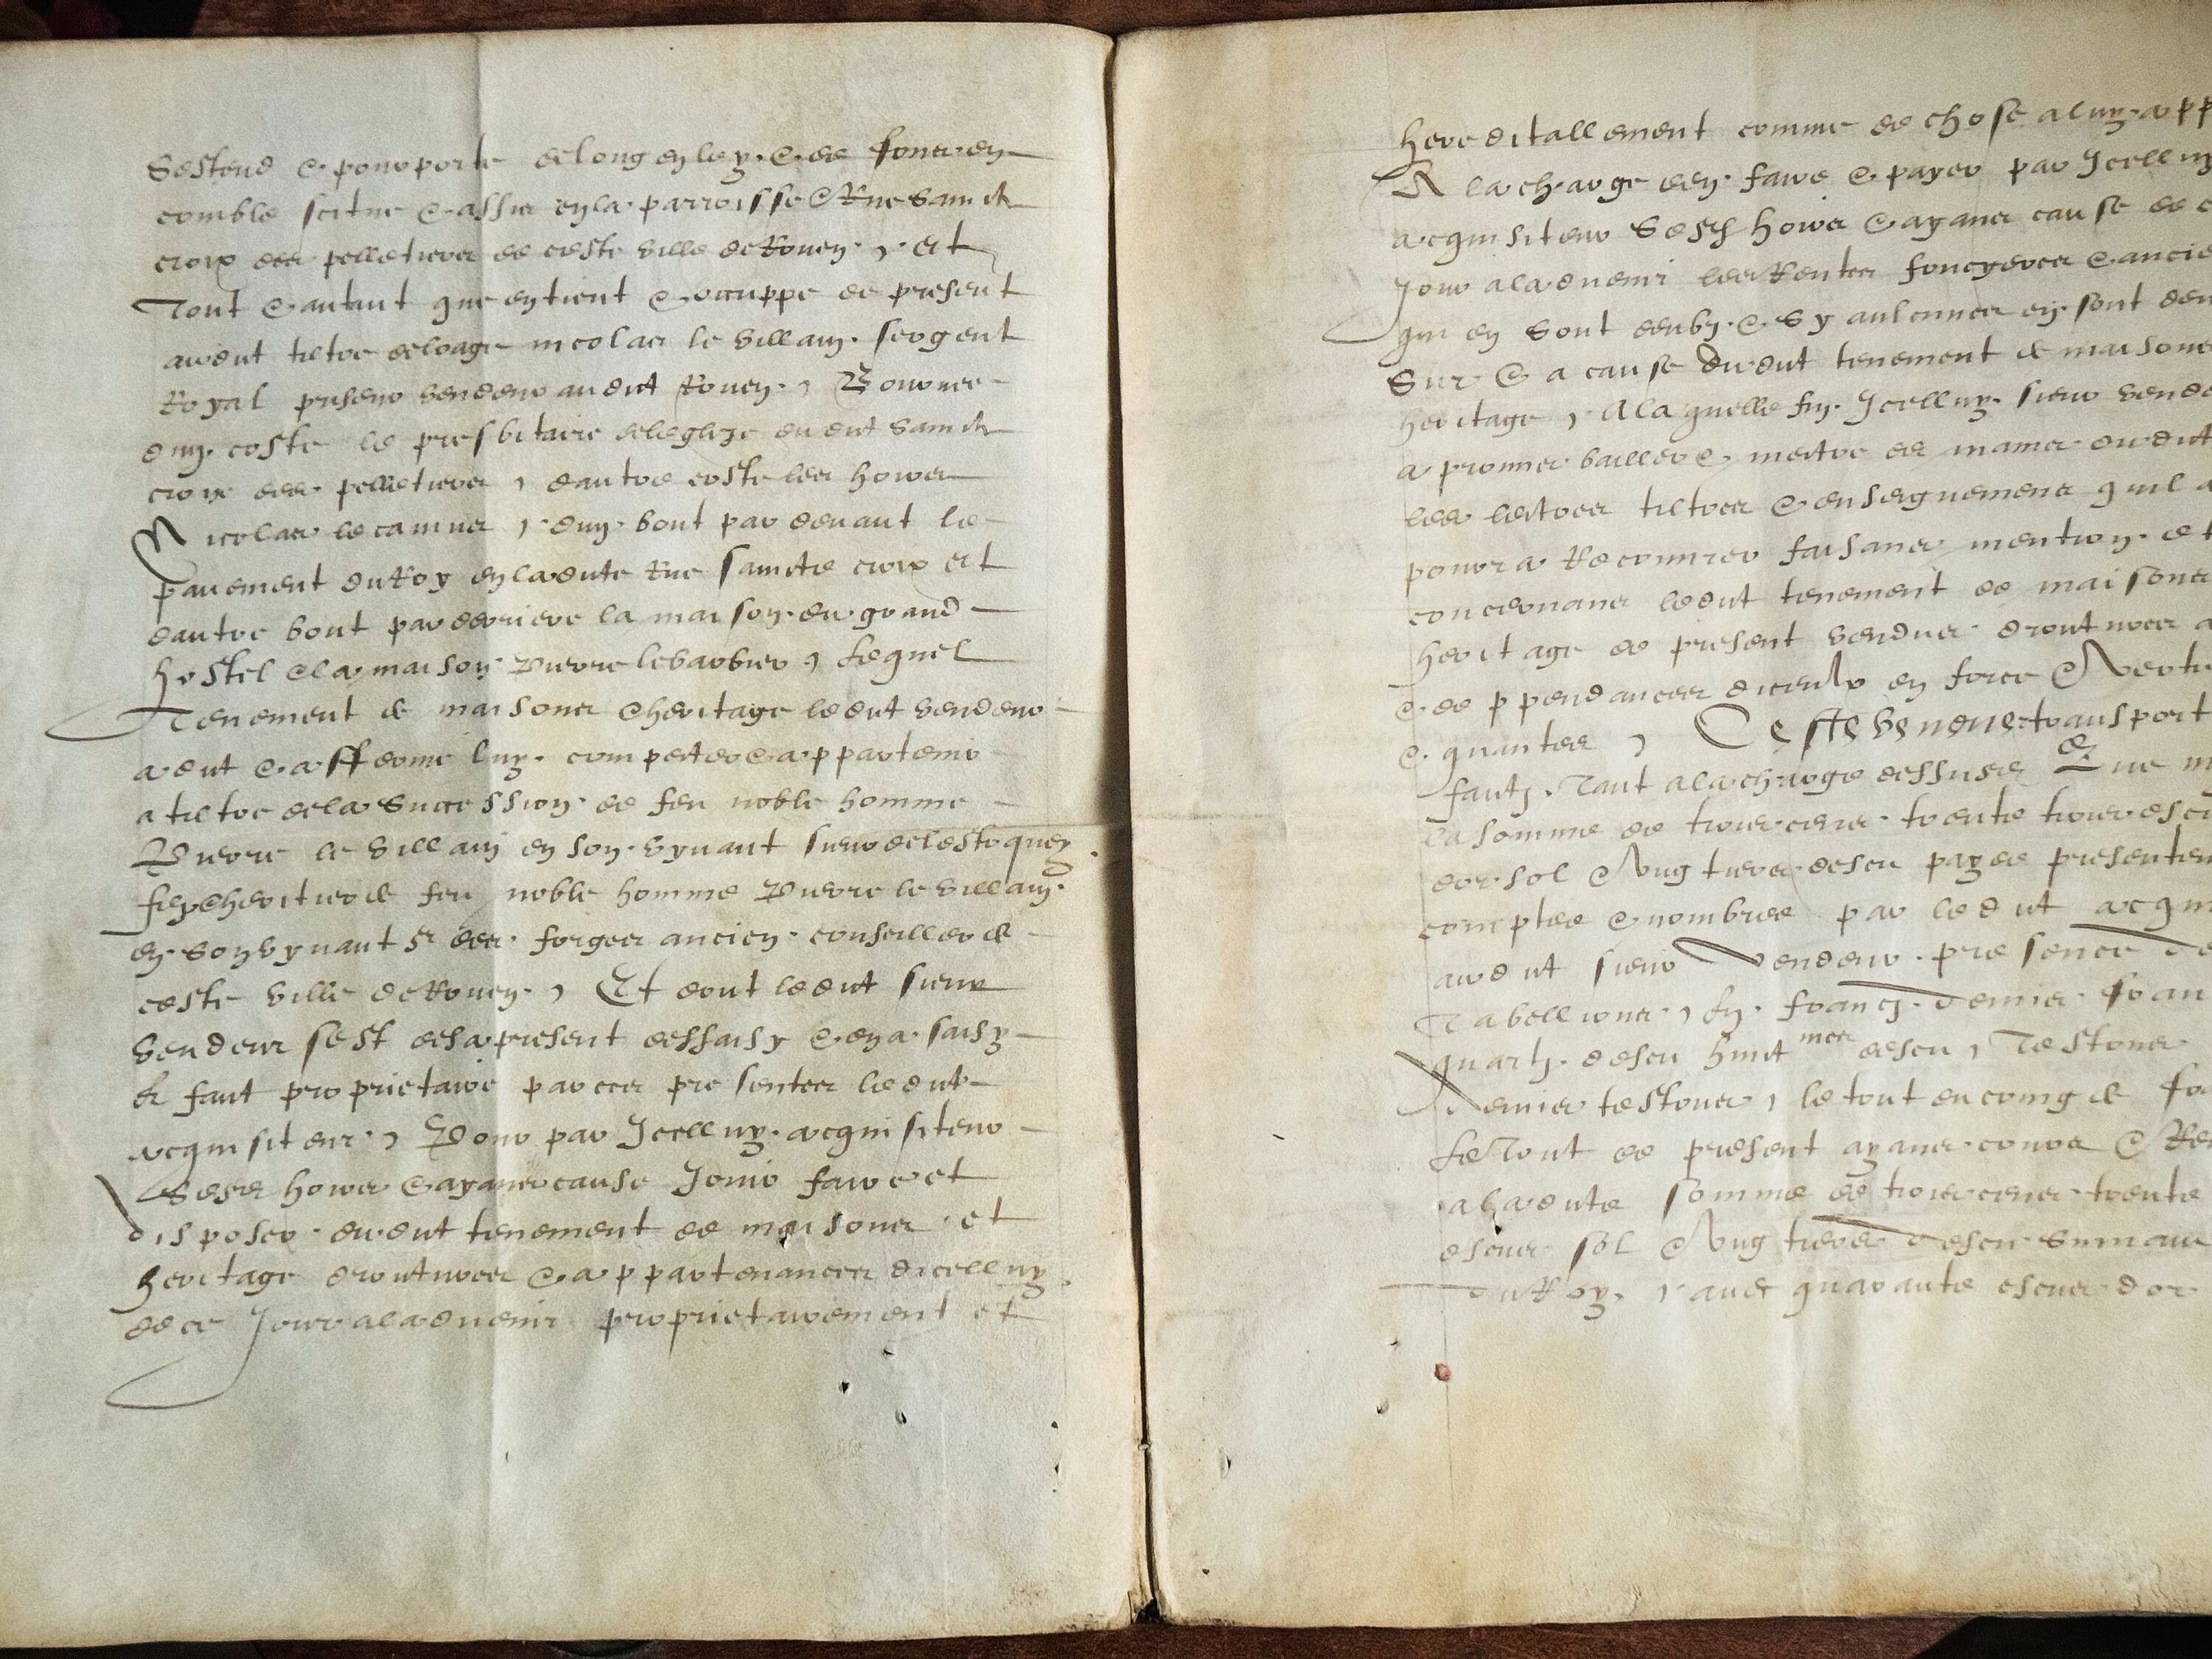 Sestend & pourporte de long en ley & de fons en
comble scitue & assis en la parroisse & Rue saincte
croix des pelletiers de ceste ville de Rouen, et
Tout & autant que en tient & occuppe de present
audit tiltre de loage nicolas le villain sergent
Royal priseur vendeur audit Rouen, Bournee
dun costé le presbitaire de leglize dudit saincte
croix des pelletiers, dautre costé les hoirs
Nicolas le camus, dun bout par devant le
pavement du Roy en ladite Rue saincte croix et
dautre bout par derriere la maison du grand
hostel & la maison Pierre le barbier, Lequel
Tenement de maisons & heritage ledit vendeur
a dit & afferme luy competer & appartenir
a tiltre de la Succession de feu noble homme
Pierre le villain en son vyvant sieur de lestoquey
filz & heritier de feu noble homme Pierre le villain
en son vyvant Sr des forges ancien conseiller de
ceste ville de Rouen, Et dont ledit sieur
vendeur sest desapresent dessaisy & en a saisy
et faict proprietaire par ces presentes ledit
acquisiteur, Pour par Icelluy acquisiteur
Sesd hoirs & ayans cause Jouir faire et
disposer dudit tenement de maisons et
heritage droictures & appartenances dicelluy
de ce Jour aladvenir proprietairement et
hereditallement comme de chose a luy app
A la charge den faire & payer par Icelluy
acquisiteur Sesd hoirs & ayans cause de c
Jour aladvenir les Rentes foncyeres & ancie
qui en sont deubz & Sy aulcunes en sont deu
Sur & a cause dudit tenement de maisons
heritage, A laquelle fin Icelluy sieur vende
a promis bailler & mettre es mains dudit
les lettres tiltres & enseignemens quil a
pourra Recouvrer faisans mention et
concernans ledit tenement de maisons
heritage de present vendues droictures a
& desppendances diceulx en force & vertu
& quantes, Ceste vendue & transport
faictz Tant a la charge dessusd Que m
la somme de trois cens trente trois escu
dor sol & Ung tiers descu payee presentem
comptee & nombree par ledit acqui
audit sieur Vendeur presence de
Tabellions, En francz demis fran
quartz descu huict mes descu, Testons
demis testons, le tout en coing de fo
Le Tout de present ayans cours & Re
a ladite somme de trois cens trente
escus sol & Ung tiers descu suivant
du Roy, avec quarante escus dor